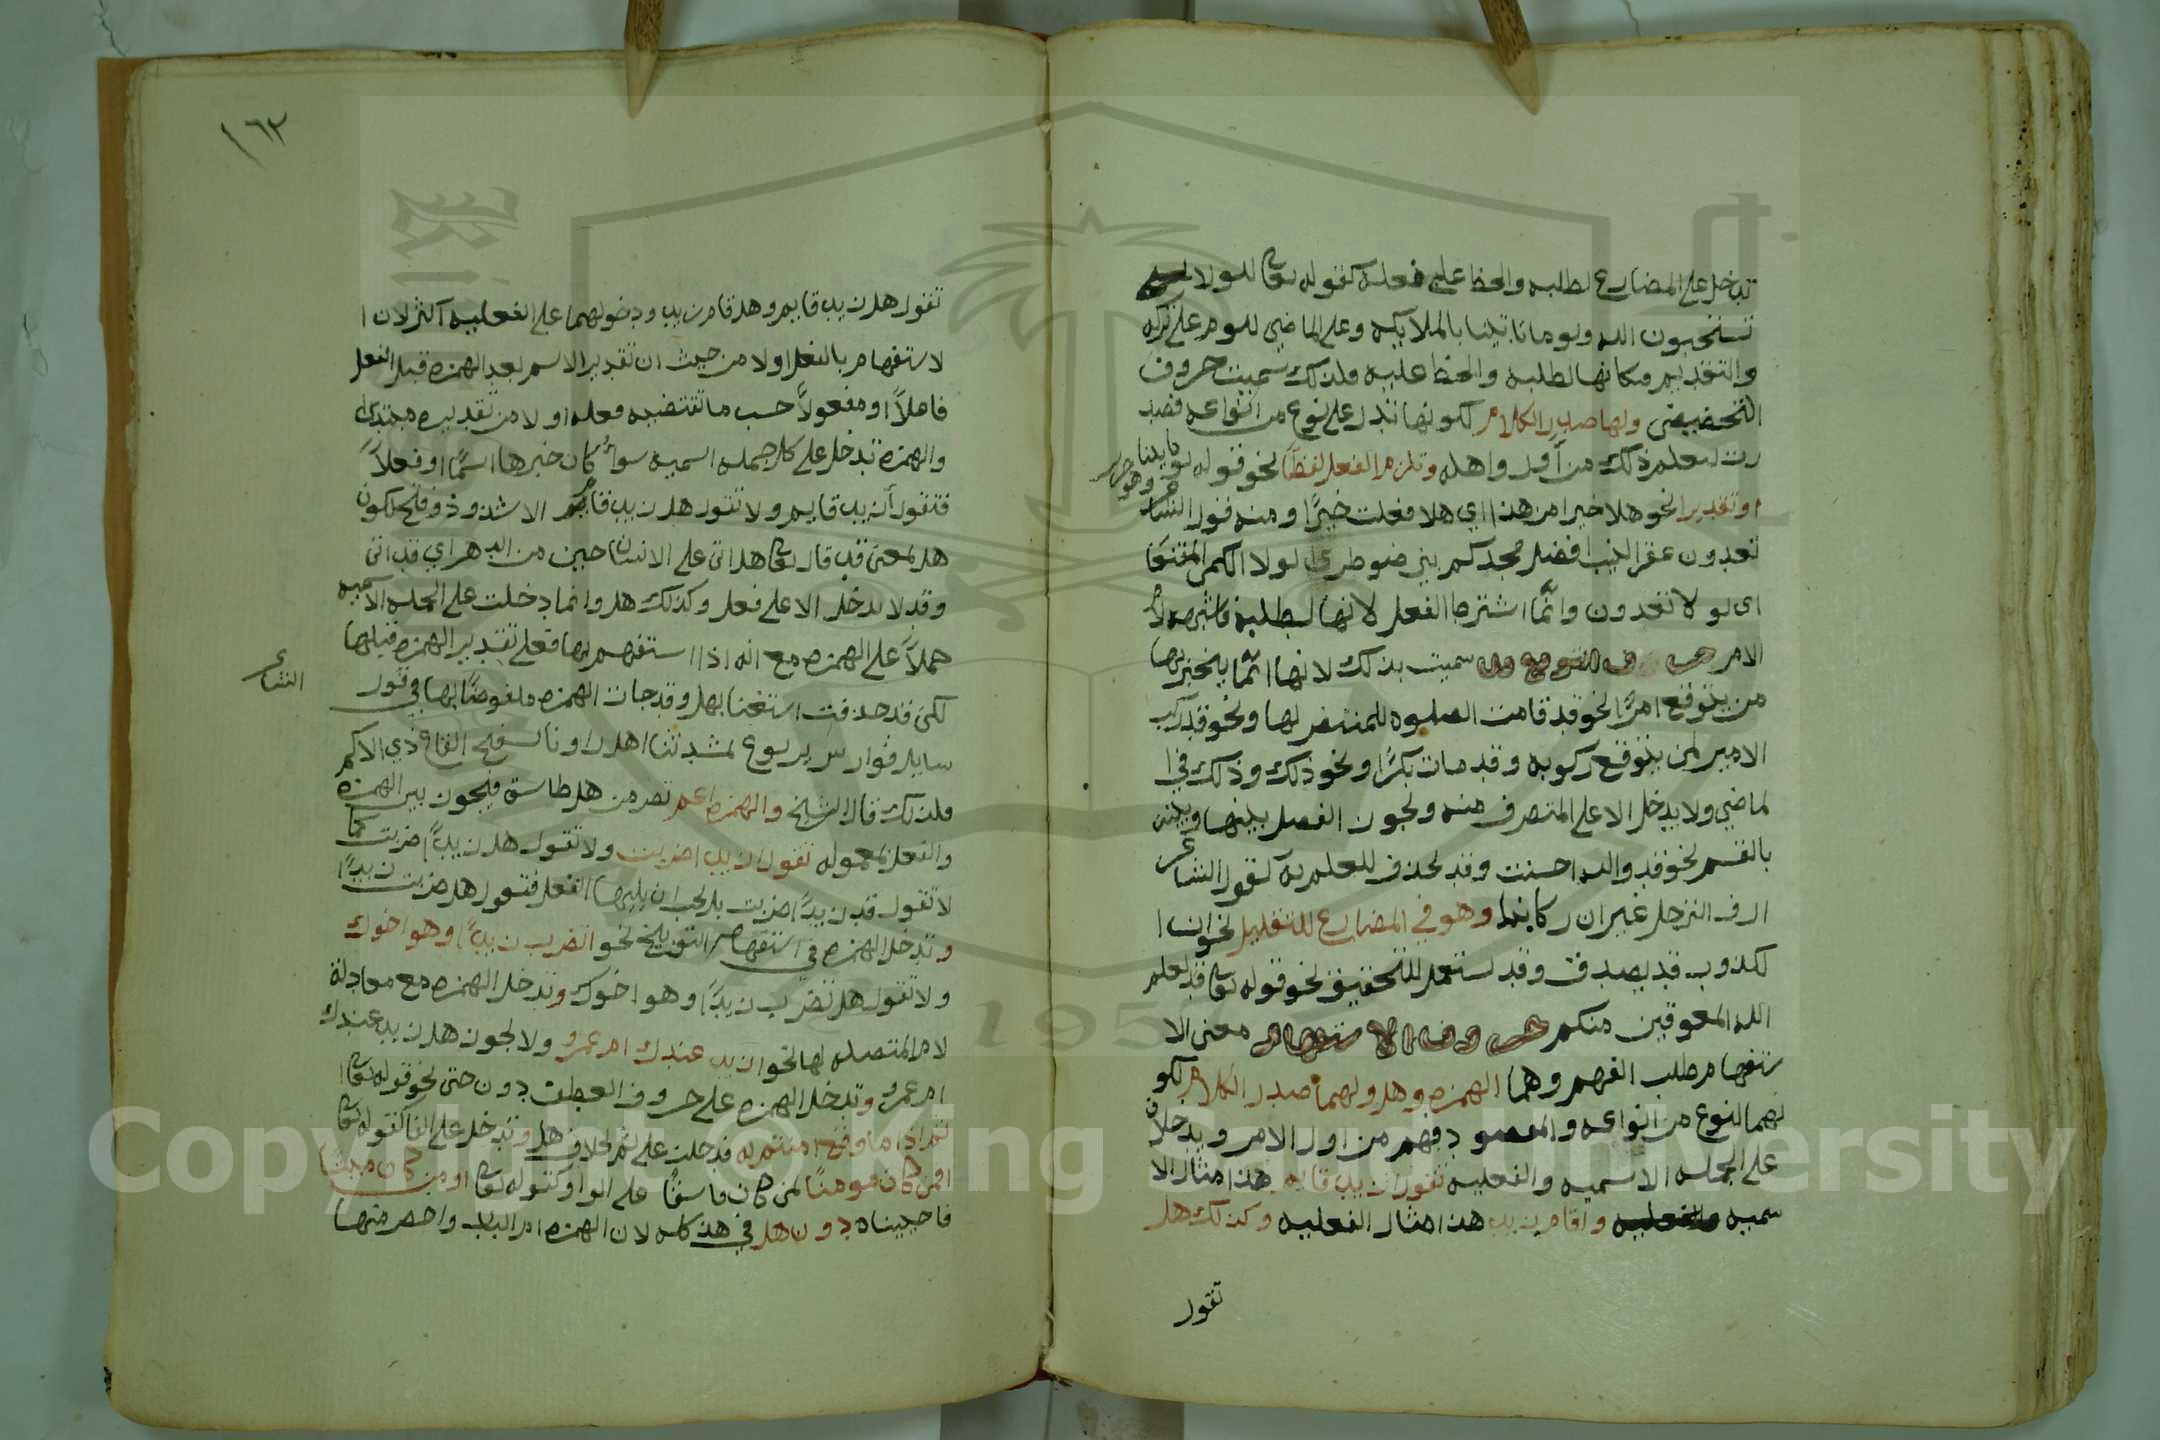 تدخل على المضارع لطلبه والحظ على فعله كقوله تعا لولا
تستغفرون الله ولوما تاتينا بالملايكه وعلى الماضي للوم على تركه
والتقديم مكانها لطلبه والحظ عليه فلذلك سميت حروف
التحضيض ولها صدر الكلام لكونها تدل على نوع من انواعه فصد
رت ليعلم ذلك من أول واهله وتلزم الفعل لفظا نحو قوله لو
ما تاتينا
او تقديرا نحو هلا خيرا من هذا اي هلا فعلت خيرًا ومنه قول الشاعر
وهو جرير
تعدون عقر النيب افضل مجدكم بني ضوطرى لولا الكمي المقنعا
اي لولا تعدون وانّما اشترط الفعل لانها لطلبه فاشبهه لا
الامر حروف التوقع قد سميت بذلك لانها انّما يخبر بها
من يتوقع امرًا نحو قد قامت الصلوه للمنتضر لها ونحو قد ركب
الامير لمن يتوقع ركوبه وقد مات بكرًا ونحو ذلك وذلك في ا
لماضي ولا يدخل الا على المتصرف منه ولجون الفصل بينها وبينه
بالقسم نحو قد والله احسنت وقد تحذف للعلم به كقول الشاعر
ازف الترحل غير ان ركابنا وهو في المضارع للتقليل نحو ان ا
لكذوب قد يصدق وقد تستعمل للتحقيق نحو قوله تعا قد يعلم
الله المعوقين منكم حروف الاستفهام معنى الا
ستفهام طلب الفهم وهما الهمزه وهل ولهما صدر الكلام لكو
نهما لنوع من انواعه والمقصود فهم من اول الامر ويدخلان
على الجمله الاسميه والفعليه تقول ازيد قايم هذا مثال الا
سميه والفعليه واقام زيد هذا مثال الفعليه وكذلك هل
تقول
١٦٢
تقول هل زيد قايم وهل قام زيد ودخولهما على الفعليه اكثر لان ا
لاستفهام بالفعل اولا من حيث ان تقدير الاسم بعد الهمزه قبل الفعل
فاعلاً او مفعولاً حسب ما تقتضيه فعله اولا من تقديره مبتداء
والهمزه تدخل على كل جمله اسميه سواءً كان خبرها اسمًا او فعلاً
فتقول أزيد قايم ولا تقول هل زيد قايم الا شذوذ وقبح لكون
هل بمعنى قد قال تعا هل اتى على الانسان حين من الدهر اي قد اتى
وقد لا تدخل الا على فعل وكذلك هل وانما دخلت على الجمله الاسميه
حملاً على الهمزه مع انه اذا استفهم بها فعلى تقدير الهمزه قبلها
لكن قد حذفت استغنا بهل وقد جات الهمزه ملفوضًا بها في قول
الشاعر
سايل فوارس يربوع بشدتنا اهل راونا بسفح القاع ذي الاكم
فلذلك قال الشيخ والهمزه اعم تصر من هل طاسة فيجون بين الهمزه
والفعل بمعموله تقول ازيدًا ضربت ولا تقول هل زيدًا ضربت كما
لا تقول قد زيدًا ضربت بل يجب ان يليها الفعل فتقول هل ضربت زيدًا
وتدخل الهمزه في استفهام التوبيخ نحو اتضرب زيدًا وهو اخوك
ولا تقول هل تضرب زيدًا وهو اخوك وتدخل الهمزه مع معادلة
لام المتصله لها نحو ازيد عندك ام عمرو ولا لجون هل زيد عندك
ام عمرو وتدخل الهمزه على حروف العطف دون حتى نحو قوله تعا ا
ثم اذا ما وقع امنتم به فدخلت على ثم بخلاف هل وتدخل على الفا كقوله تعا
افمن كان مومنًا كمن كان فاسقًا على الواو كقوله تعا او من كان ميتًا
فاحييناه دون هل في هذ كله لان الهمزه ام الباب واخصر منها